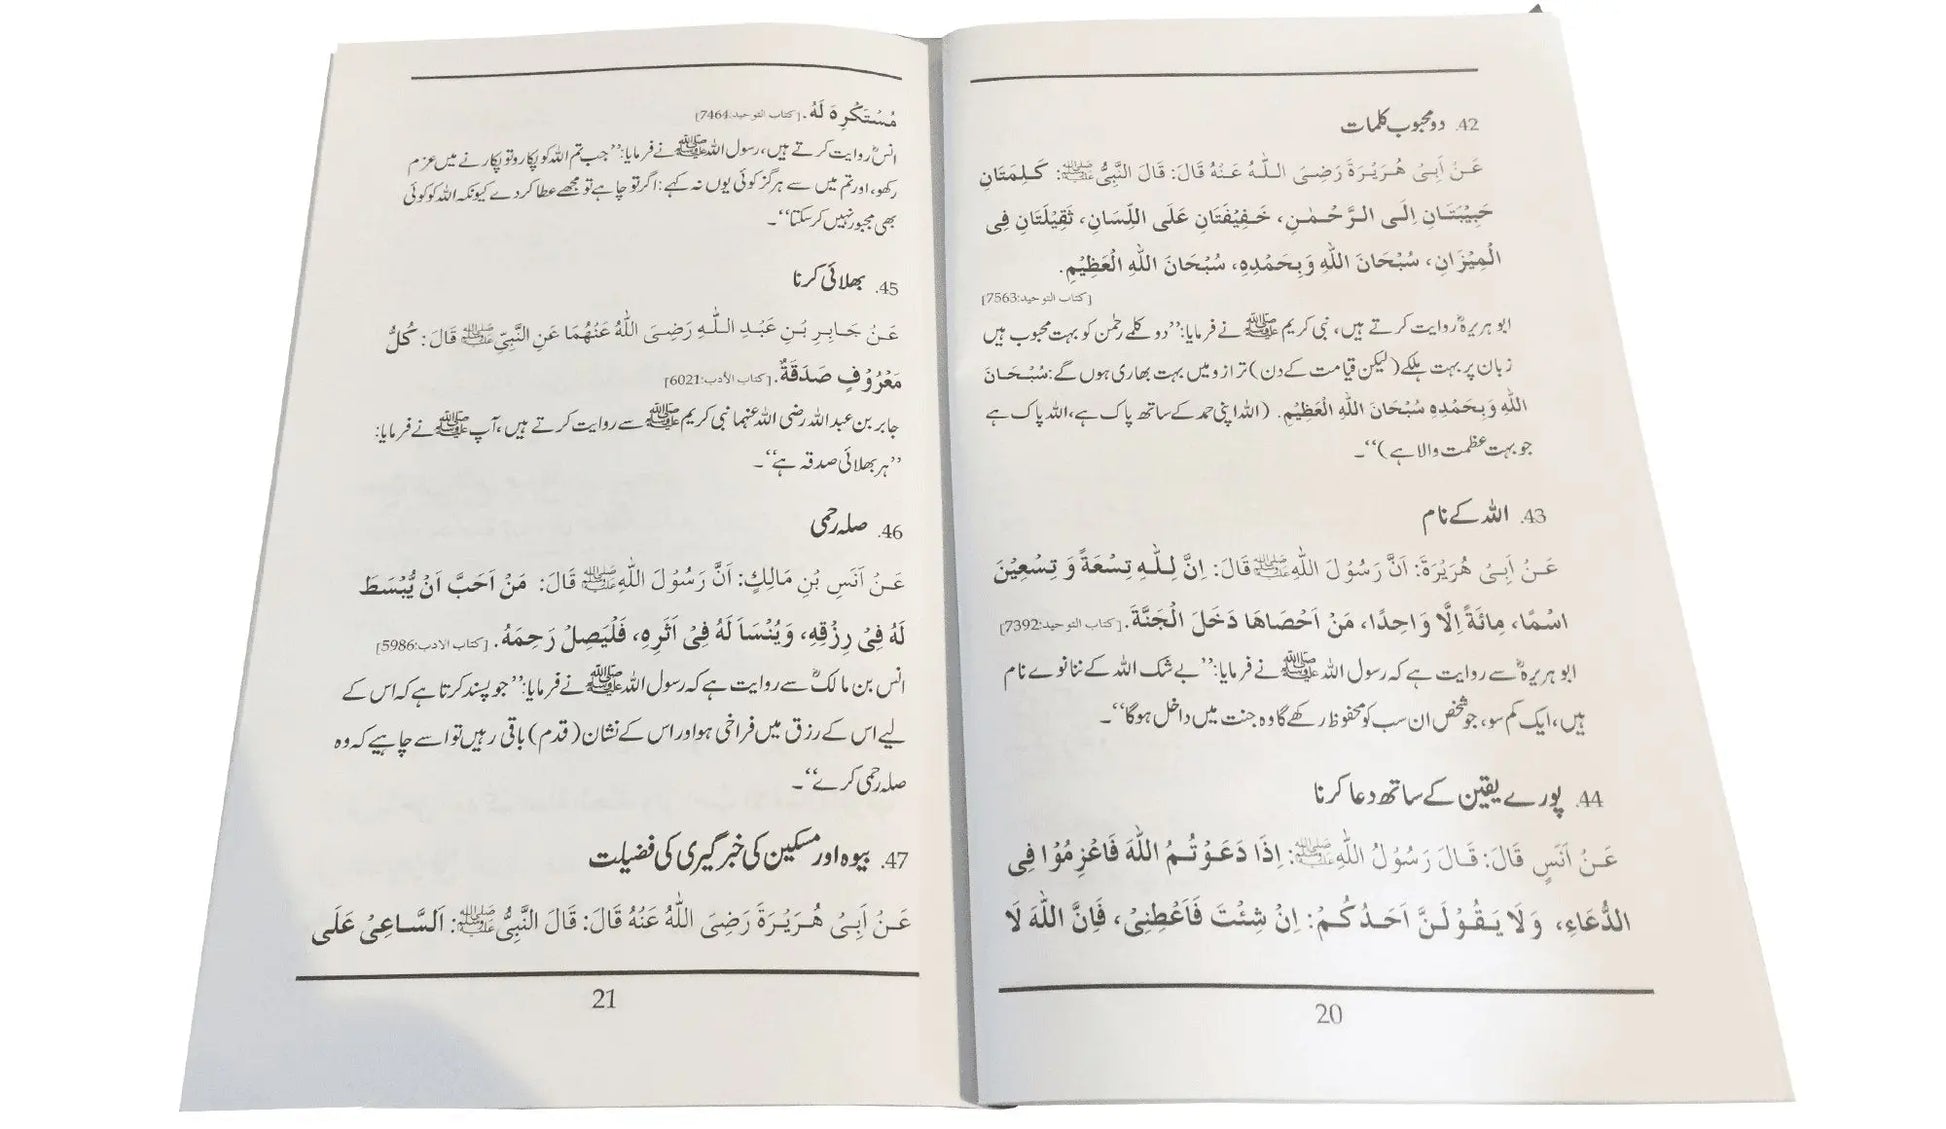 42. دو محبوب کلمات
عَنْ اَبِیْ هُرَيْرَةَ رَضِیَ اللّٰهُ عَنْهُ قَالَ: قَالَ النَّبِیُّ ﷺ: كَلِمَتَانِ
حَبِيْبَتَانِ اِلَی الرَّحْمٰنِ، خَفِيْفَتَانِ عَلَی اللِّسَانِ، ثَقِيْلَتَانِ فِی
الْمِيْزَانِ، سُبْحَانَ اللّٰهِ وَبِحَمْدِهِ، سُبْحَانَ اللّٰهِ الْعَظِيْمِ.
[كتاب التوحيد:7563]
ابو ہریرہؓ روایت کرتے ہیں، نبی کریم ﷺ نے فرمایا: ’’دو کلمے رحمٰن کو بہت محبوب ہیں
زبان پر بہت ہلکے (لیکن قیامت کے دن) ترازو میں بہت بھاری ہوں گے: سُبْحَانَ
اللّٰهِ وَبِحَمْدِهِ سُبْحَانَ اللّٰهِ الْعَظِيْمِ. (اللہ اپنی حمد کے ساتھ پاک ہے، اللہ پاک ہے
جو بہت عظمت والا ہے)‘‘۔
43. اللہ کے نام
عَنْ اَبِیْ هُرَيْرَةَ: اَنَّ رَسُوْلَ اللّٰهِ ﷺ قَالَ: اِنَّ لِلّٰهِ تِسْعَةً وَ تِسْعِيْنَ
اسْمًا، مِائَةً اِلَّا وَاحِدًا، مَنْ اَحْصَاهَا دَخَلَ الْجَنَّةَ. [كتاب التوحيد:7392]
ابو ہریرہؓ سے روایت ہے کہ رسول اللہ ﷺ نے فرمایا: ’’بے شک اللہ کے ننانوے نام
ہیں، ایک کم سو، جو شخص ان سب کو محفوظ رکھے گا وہ جنت میں داخل ہوگا‘‘۔
44. پورے یقین کے ساتھ دعا کرنا
عَنْ اَنَسٍ قَالَ: قَالَ رَسُوْلُ اللّٰهِ ﷺ: اِذَا دَعَوْتُمُ اللّٰهَ فَاعْزِمُوْا فِی
الدُّعَاءِ، وَلَا يَقُوْلَنَّ اَحَدُكُمْ: اِنْ شِئْتَ فَاَعْطِنِیْ، فَاِنَّ اللّٰهَ لَا
20
مُسْتَكْرِهَ لَهُ. [كتاب التوحيد:7464]
انسؓ روایت کرتے ہیں، رسول اللہ ﷺ نے فرمایا: ’’جب تم اللہ کو پکارو تو پکارنے میں عزم
رکھو، اور تم میں سے ہرگز کوئی یوں نہ کہے: اگر تو چاہے تو مجھے عطا کر دے کیونکہ اللہ کو کوئی
بھی مجبور نہیں کر سکتا‘‘۔
45. بھلائی کرنا
عَنْ جَابِرِ بْنِ عَبْدِ اللّٰهِ رَضِیَ اللّٰهُ عَنْهُمَا عَنِ النَّبِیِّ ﷺ قَالَ: كُلُّ
مَعْرُوْفٍ صَدَقَةٌ. [كتاب الأدب:6021]
جابر بن عبداللہ رضی اللہ عنہما نبی کریم ﷺ سے روایت کرتے ہیں، آپ ﷺ نے فرمایا:
’’ہر بھلائی صدقہ ہے‘‘۔
46. صلہ رحمی
عَنْ اَنَسِ بْنِ مَالِكٍ: اَنَّ رَسُوْلَ اللّٰهِ ﷺ قَالَ: مَنْ اَحَبَّ اَنْ يُّبْسَطَ
لَهُ فِیْ رِزْقِهِ، وَيُنْسَاَ لَهُ فِیْ اَثَرِهِ، فَلْيَصِلْ رَحِمَهُ. [كتاب الادب:5986]
انس بن مالکؓ سے روایت ہے کہ رسول اللہ ﷺ نے فرمایا: ’’جو پسند کرتا ہے کہ اس کے
لیے اس کے رزق میں فراخی ہو اور اس کے نشان (قدم) باقی رہیں تو اسے چاہیے کہ وہ
صلہ رحمی کرے‘‘۔
47. بیوہ اور مسکین کی خبر گیری کی فضیلت
عَنْ اَبِیْ هُرَيْرَةَ رَضِیَ اللّٰهُ عَنْهُ قَالَ: قَالَ النَّبِیُّ ﷺ: اَلسَّاعِیْ عَلَی
21